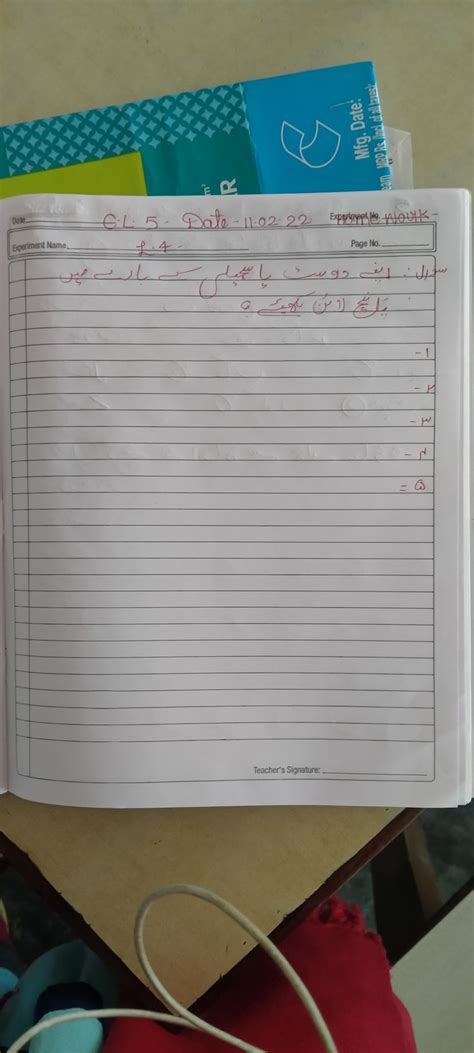 Mfg. Date:
R
Date
C.L 5 - Date - 11.02.22
Experiment No.
Home Work -
Experiment Name
L 4 -
Page No.
سوال: اپنے دوست یا سہیلی کے بارے میں
پانچ لائن لکھیئے ؟
۱-
۲-
۳-
۴-
۵=
Teacher's Signature: